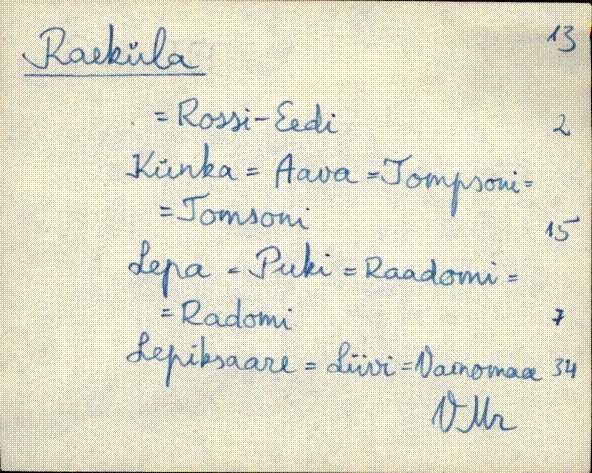 Raeküla 13
= Rossi-Eedi 2
Künka = Aava = Tompsoni =
= Tomsoni 15
Lepa = Puki = Raadomi =
= Radomi 7
Lepiksaare = Liivi = Vainomaa 34
VMr